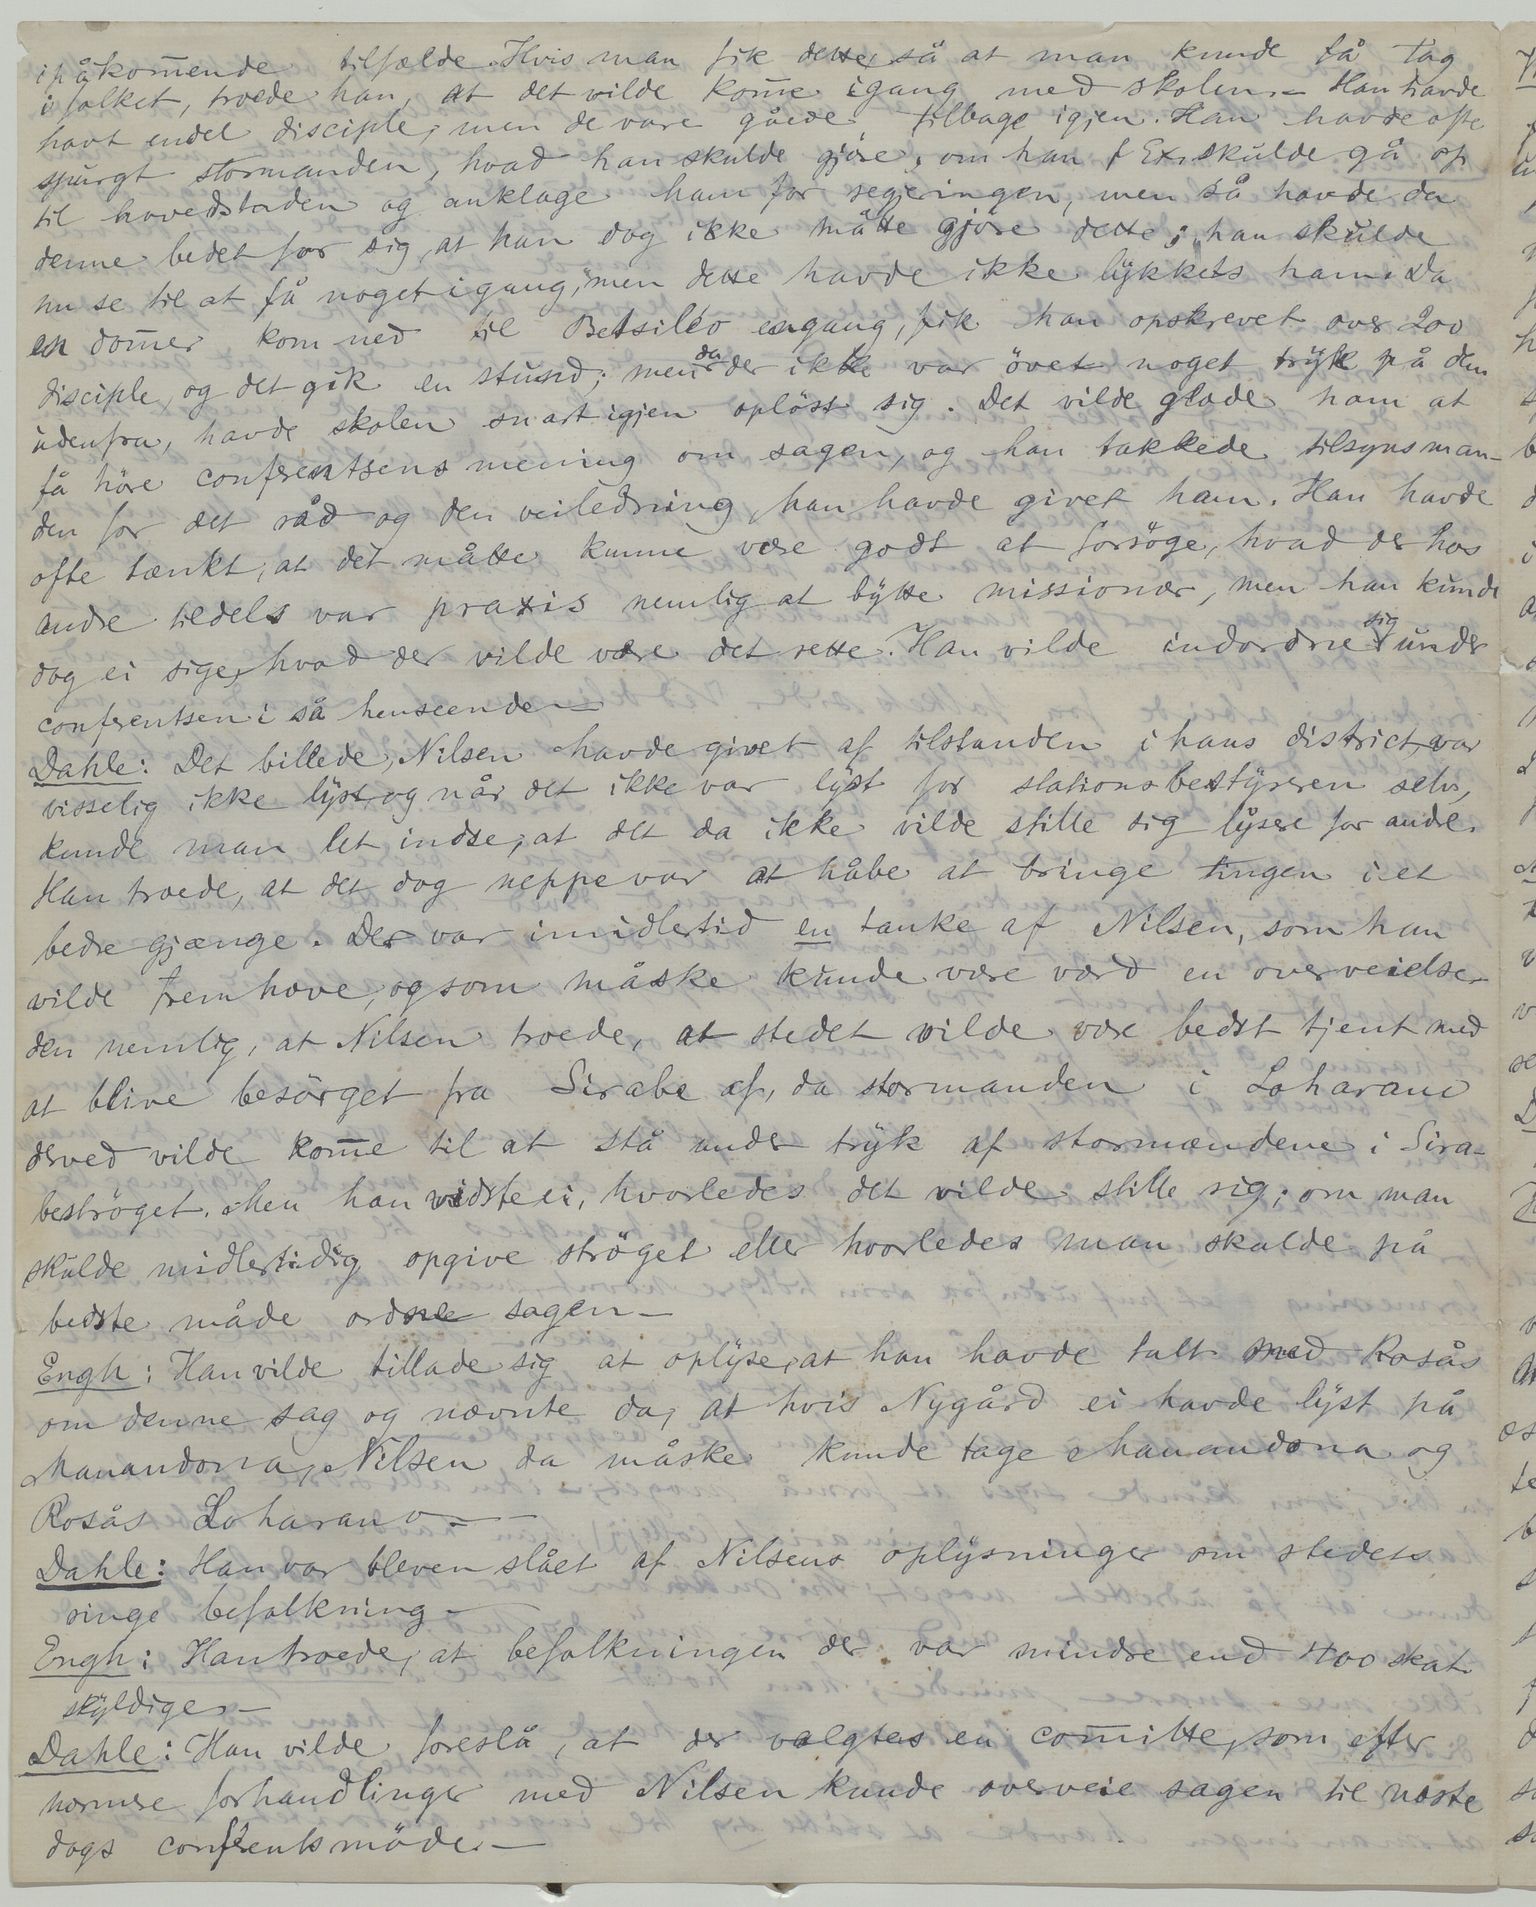 ipåkom̅ende tilfælde. Hvis man fik dette, så at man kunde få tag
i folket, troede han, at det vilde kom̅e igang med skolen. – Han havde
havt endel disciple, men de vare gåede tilbage igjen. Han havde ofte
spurgt stormanden, hvad han skulde gjöre, om han f Ex. skulde gå op
til hovedstaden og anklage ham for regjeringen, men så havde da
denne bedet for sig, at han dog ikke måtte gjöre dette; han skulde
nu se til at få noget igang, men dette havde ikke lykkets ham. Da
en dom̅er kom ned til Betsiléo engang, fik han opskrevet over 200
disciple, og det gik en stund; men da der ikke var övet noget tryk på dem
udenfra, havde skolen snart igjen oplöst sig. Det vilde glæde ham at
få höre confrentsens mening om sagen, og han takkede tilsynsman-
den for det råd og den veiledning, han havde givet ham. Han havde
ofte tænkt, at det måtte kunne være godt at forsöge, hvad der hos
andre tildels var praxis nemlig at bytte missionær, men han kunde
dog ei sige, hvad der vilde være det rette. Han vilde indordne sig under
confrentsen i så henseende –
Dahle: Det billede, Nilsen havde givet af tilstanden i hans district, var
visselig ikke lyst, og når det ikke var lyst for stationsbestyreren selv,
kunde man let indse, at det da ikke vilde stille sig lysere for andre.
Han troede, at det dog neppe var at håbe at bringe tingen i et
bedre gjænge. Der var imidlertid en tanke af Nilsen, som han
vilde fremhæve, og som måske kunde være værd en overveielse
den nemlig, at Nilsen troede, at stedet vilde være bedst tjent med
at blive besörget fra Sirabe af, da stormanden i Loharano
derved vilde kom̅e til at stå under tryk af stormændene i Sira-
beströget. Men han vidste ei, hvorledes det vilde stille sig, om man
skulde midlertidig opgive ströget eller hvorledes man skulde på
bedste måde ordne sagen –
Engh: Han vilde tillade sig at oplyse, at han havde talt med Rosås
om denne sag og nævnte da, at hvis Nygård ei havde lyst på
Manandona, Nilsen da måske kunde tage Manandona og
Rosås Loharano – –
Dahle: Han var bleven slået af Nilsens oplysninger om stedets
ringe befolkning –
Engh: Han troede, at befolkningen der var mindre end 400 skat-
skyldige –
Dahle: Han vilde foreslå, at der valgtes en com̅itte, som efter
nærmere forhandlinger med Nilsen kunde overveie sagen til næste
dags confrentsmöde. –